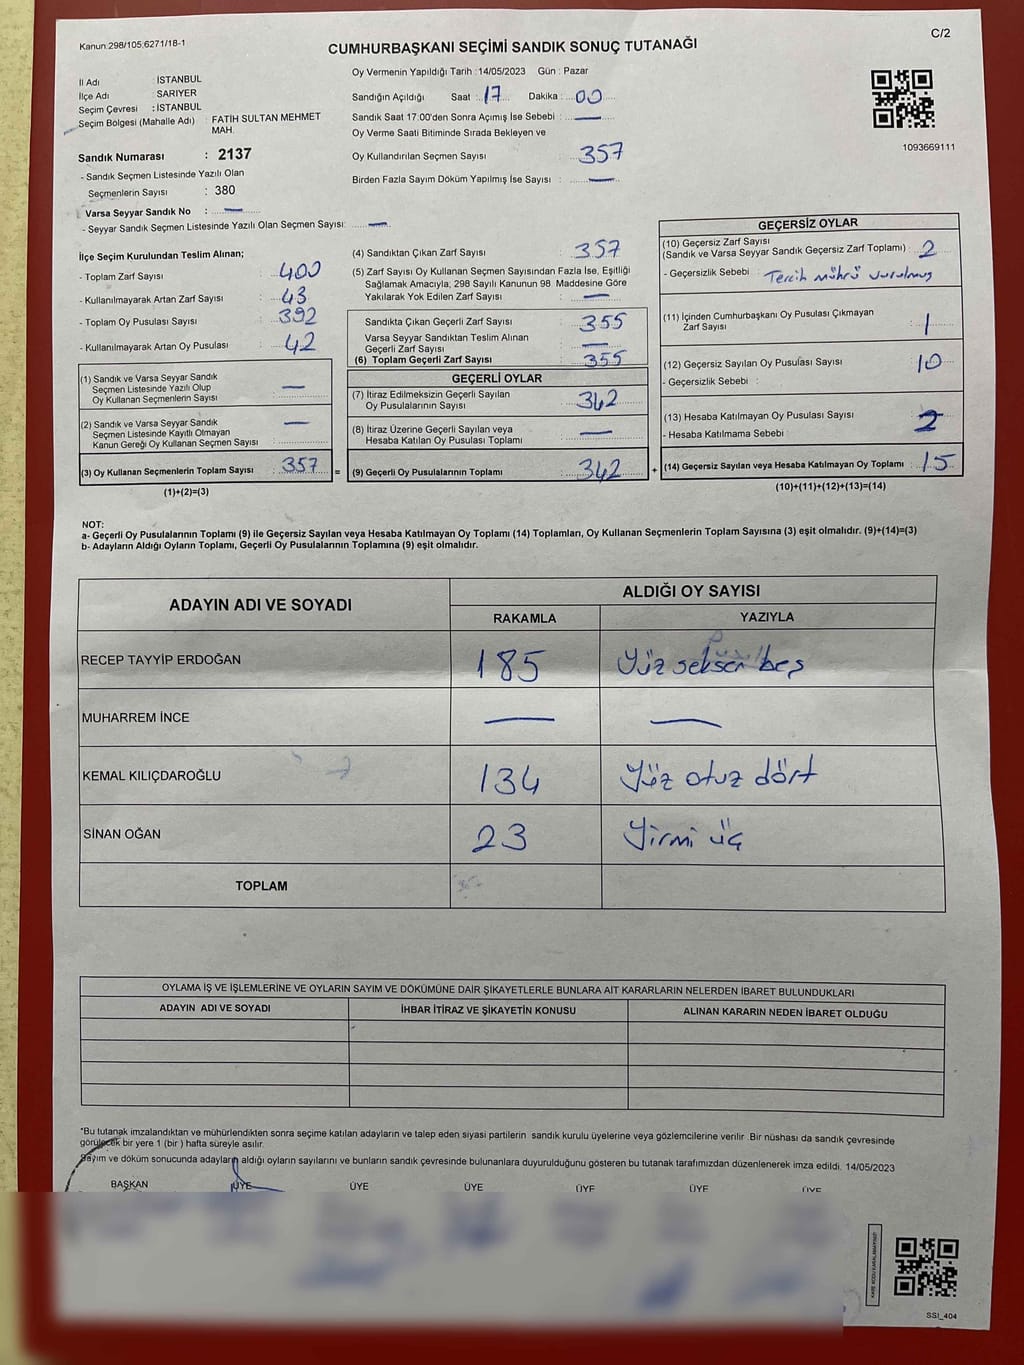 Kanun:298/105;6271/18-1
C/2
CUMHURBAŞKANI SEÇİMİ SANDIK SONUÇ TUTANAĞI
İl Adı : İSTANBUL
İlçe Adı : SARIYER
Seçim Çevresi : İSTANBUL
Seçim Bölgesi (Mahalle Adı) : FATİH SULTAN MEHMET
MAH.
Sandık Numarası : 2137
- Sandık Seçmen Listesinde Yazılı Olan
Seçmenlerin Sayısı : 380
Varsa Seyyar Sandık No : —
- Seyyar Sandık Seçmen Listesinde Yazılı Olan Seçmen Sayısı: —
Oy Vermenin Yapıldığı Tarih : 14/05/2023 Gün : Pazar
Sandığın Açıldığı Saat : 17 Dakika : 00
Sandık Saat 17:00'den Sonra Açımış İse Sebebi : —
Oy Verme Saati Bitiminde Sırada Bekleyen ve
Oy Kullandırılan Seçmen Sayısı : 357
Birden Fazla Sayım Döküm Yapılmış İse Sayısı : —
1093669111
İlçe Seçim Kurulundan Teslim Alınan;
- Toplam Zarf Sayısı : 400
- Kullanılmayarak Artan Zarf Sayısı : 43
- Toplam Oy Pusulası Sayısı : 392
- Kullanılmayarak Artan Oy Pusulası : 42
(1) Sandık ve Varsa Seyyar Sandık
Seçmen Listesinde Yazılı Olup
Oy Kullanan Seçmenlerin Sayısı : —
(2) Sandık ve Varsa Seyyar Sandık
Seçmen Listesinde Kayıtlı Olmayan
Kanun Gereği Oy Kullanan Seçmen Sayısı : —
(3) Oy Kullanan Seçmenlerin Toplam Sayısı : 357 =
(1)+(2)=(3)
(4) Sandıktan Çıkan Zarf Sayısı : 357
(5) Zarf Sayısı Oy Kullanan Seçmen Sayısından Fazla İse, Eşitliği
Sağlamak Amacıyla, 298 Sayılı Kanunun 98 Maddesine Göre
Yakılarak Yok Edilen Zarf Sayısı : —
Sandıkta Çıkan Geçerli Zarf Sayısı : 355
Varsa Seyyar Sandıktan Teslim Alınan
Geçerli Zarf Sayısı : —
(6) Toplam Geçerli Zarf Sayısı : 355
GEÇERLİ OYLAR
(7) İtiraz Edilmeksizin Geçerli Sayılan
Oy Pusulalarının Sayısı : 342
(8) İtiraz Üzerine Geçerli Sayılan veya
Hesaba Katılan Oy Pusulası Toplamı : —
(9) Geçerli Oy Pusulalarının Toplamı : 342 +
GEÇERSİZ OYLAR
(10) Geçersiz Zarf Sayısı
(Sandık ve Varsa Seyyar Sandık Geçersiz Zarf Toplamı) : 2
- Geçersizlik Sebebi : Tercih mührü vurulmuş
(11) İçinden Cumhurbaşkanı Oy Pusulası Çıkmayan
Zarf Sayısı : 1
(12) Geçersiz Sayılan Oy Pusulası Sayısı : 10
- Geçersizlik Sebebi :
(13) Hesaba Katılmayan Oy Pusulası Sayısı : 2
- Hesaba Katılmama Sebebi :
(14) Geçersiz Sayılan veya Hesaba Katılmayan Oy Toplamı : 15
(10)+(11)+(12)+(13)=(14)
NOT:
a- Geçerli Oy Pusulalarının Toplamı (9) ile Geçersiz Sayılan veya Hesaba Katılmayan Oy Toplamı (14) Toplamları, Oy Kullanan Seçmenlerin Toplam Sayısına (3) eşit olmalıdır. (9)+(14)=(3)
b- Adayların Aldığı Oyların Toplamı, Geçerli Oy Pusulalarının Toplamına (9) eşit olmalıdır.
ADAYIN ADI VE SOYADI
ALDIĞI OY SAYISI
RAKAMLA YAZIYLA
RECEP TAYYİP ERDOĞAN 185 Yüz seksen beş
MUHARREM İNCE — —
KEMAL KILIÇDAROĞLU 134 Yüz otuz dört
SİNAN OĞAN 23 Yirmi üç
TOPLAM
OYLAMA İŞ VE İŞLEMLERİNE VE OYLARIN SAYIM VE DÖKÜMÜNE DAİR ŞİKAYETLERLE BUNLARA AİT KARARLARIN NELERDEN İBARET BULUNDUKLARI
ADAYIN ADI VE SOYADI İHBAR İTİRAZ VE ŞİKAYETİN KONUSU ALINAN KARARIN NEDEN İBARET OLDUĞU
*Bu tutanak imzalandıktan ve mühürlendikten sonra seçime katılan adayların ve talep eden siyasi partilerin sandık kurulu üyelerine veya gözlemcilerine verilir .Bir nüshası da sandık çevresinde
görülecek bir yere 1 (bir ) hafta süreyle asılır.
Sayım ve döküm sonucunda adayların aldığı oyların sayılarını ve bunların sandık çevresinde bulunanlara duyurulduğunu gösteren bu tutanak tarafımızdan düzenlenerek imza edildi. 14/05/2023
BAŞKAN ÜYE ÜYE ÜYE ÜYE ÜYE ÜYE
SSI_404